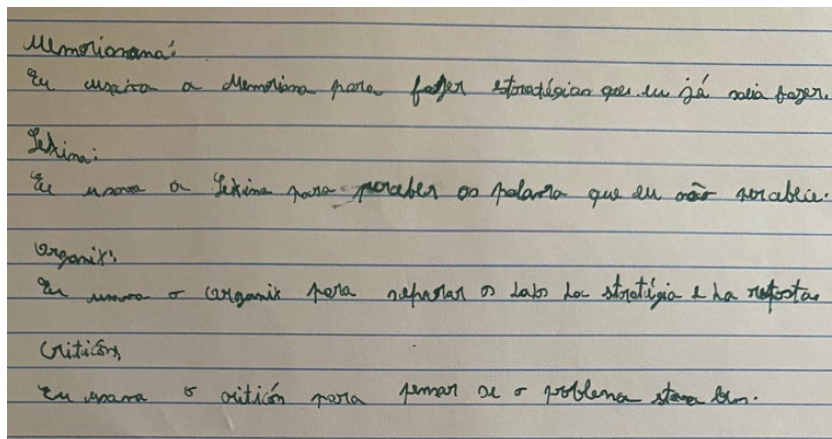 Memorianana:
Eu usava a Memoriana para fazer stratégias que eu já sabia fazer.
Lexina:
Eu usava a Lexina para perceber as palavra que eu não percebia.
Organix:
Eu usava o Organix para separar os dados da stratégia e da resposta.
Criticón,
Eu usava o criticón para pensar se o problema stava bem.